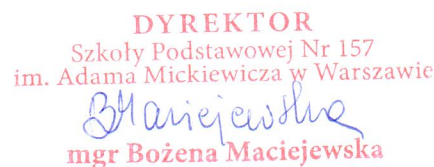 DYREKTOR
Szkoły Podstawowej Nr 157
im. Adama Mickiewicza w Warszawie
BMaciejewska
mgr Bożena Maciejewska